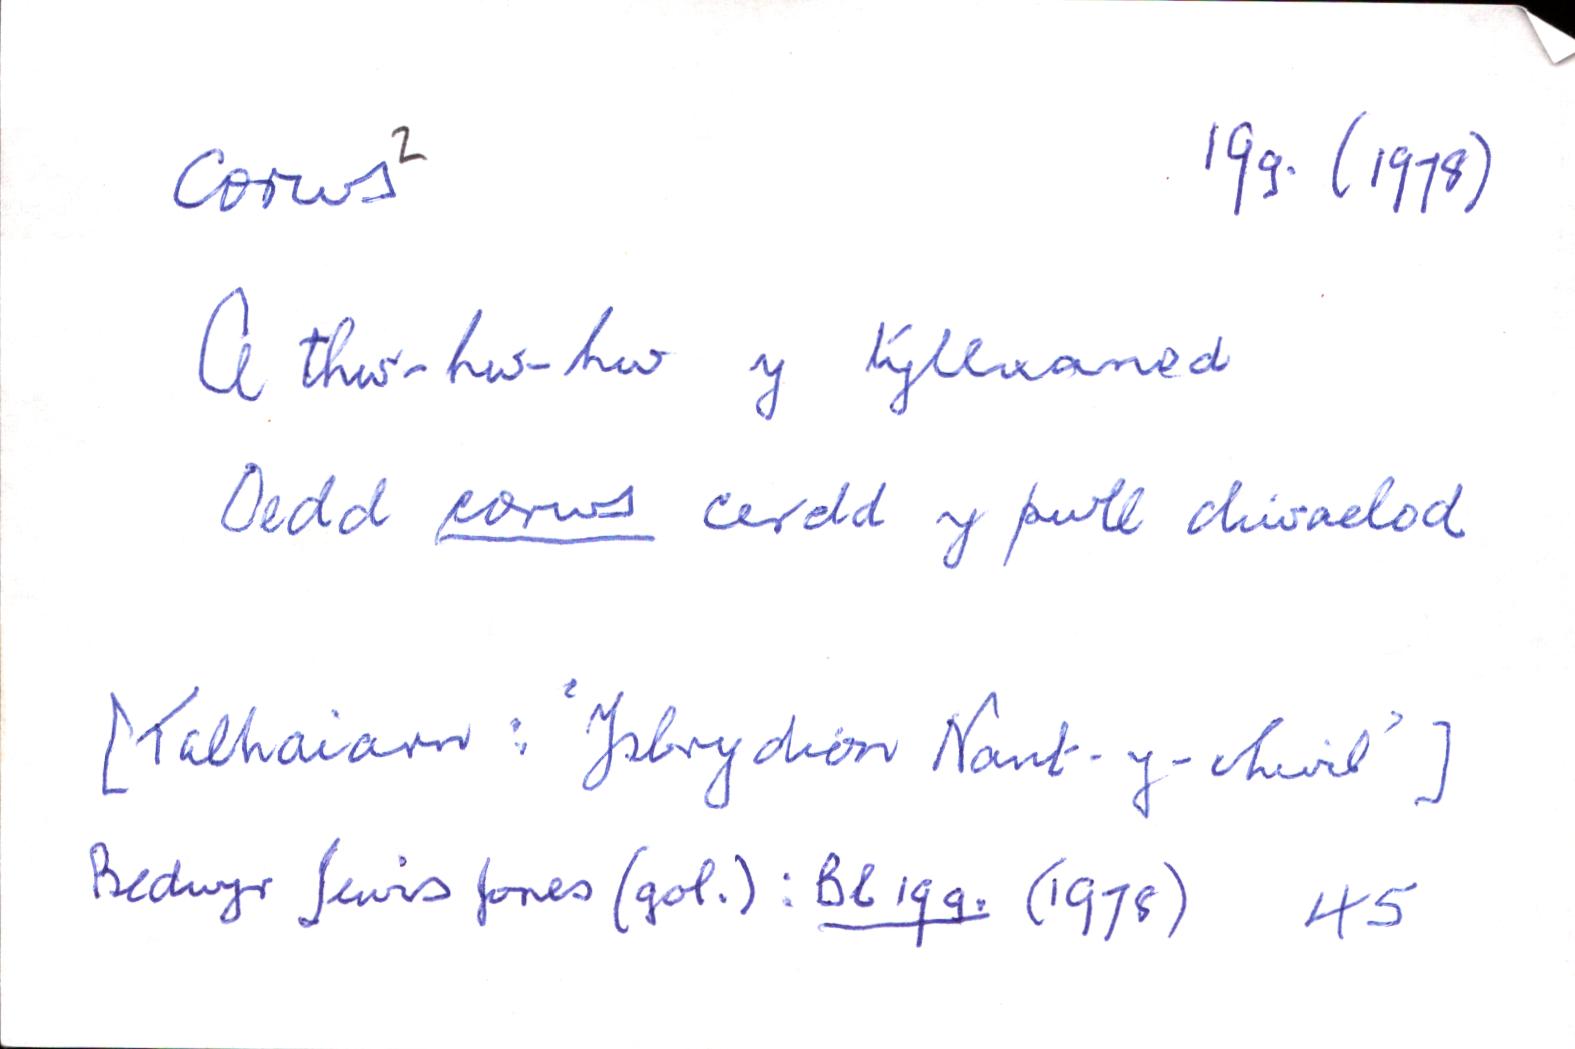 corws² 19g. (1978)
A thw-hw-hw y tylluanod
Oedd corws cerdd y pwll diwaelod
[Talhaiarn: 'Ysbrydion Nant-y-chwil']
Bedwyr Lewis Jones (gol.): Bl 19g. (1978) 45